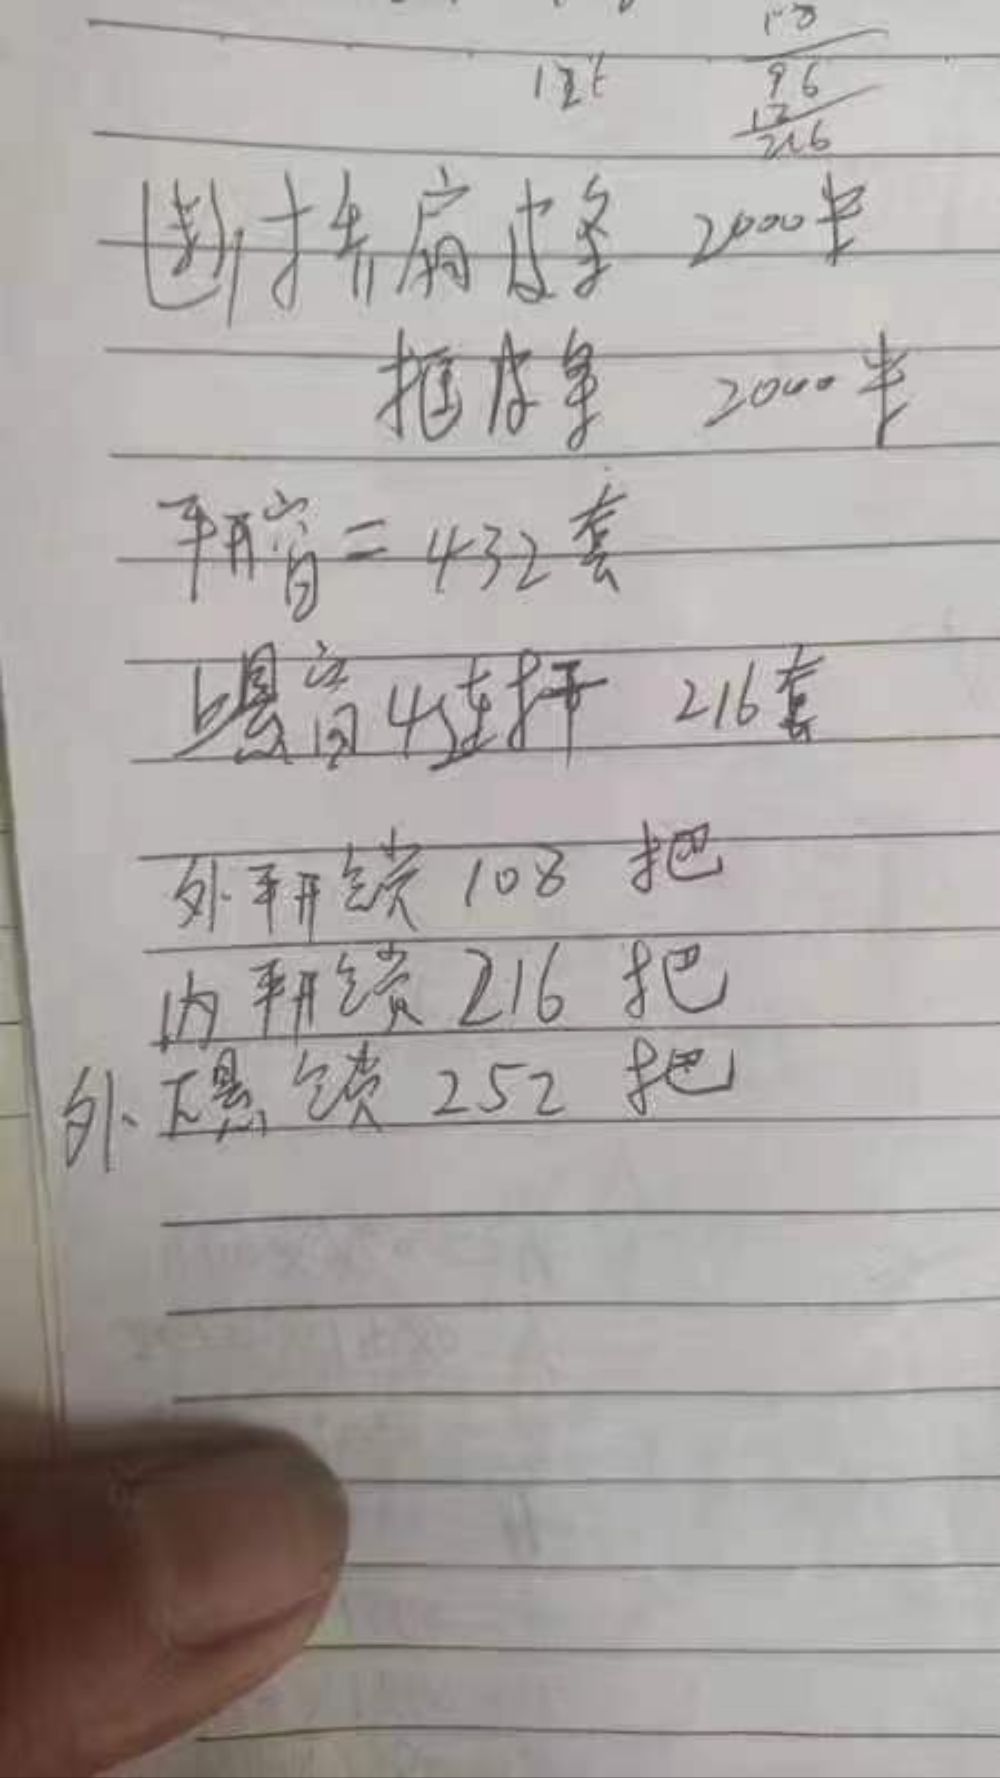 96
216
断桥扇皮条 2000米
框皮条 2000米
平开窗=432套
上悬窗4连杆 216套
外平开锁 108 把
内平开锁 216 把
外下悬锁 252 把